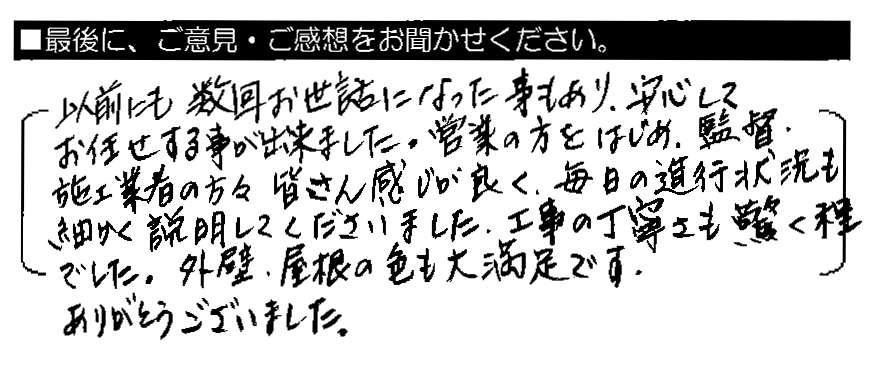 ■最後に、ご意見・ご感想をお聞かせください。
以前にも数回お世話になった事もあり、安心して
お任せする事が出来ました。営業の方をはじめ、監督、
施工業者の方々皆さん感じが良く、毎日の進行状況も
細かく説明してくださいました、工事の丁寧さも驚く程
でした。外壁、屋根の色も大満足です。
ありがとうございました。